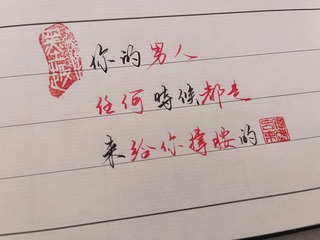 你的男人
任何時候都是
来给你撑腰的